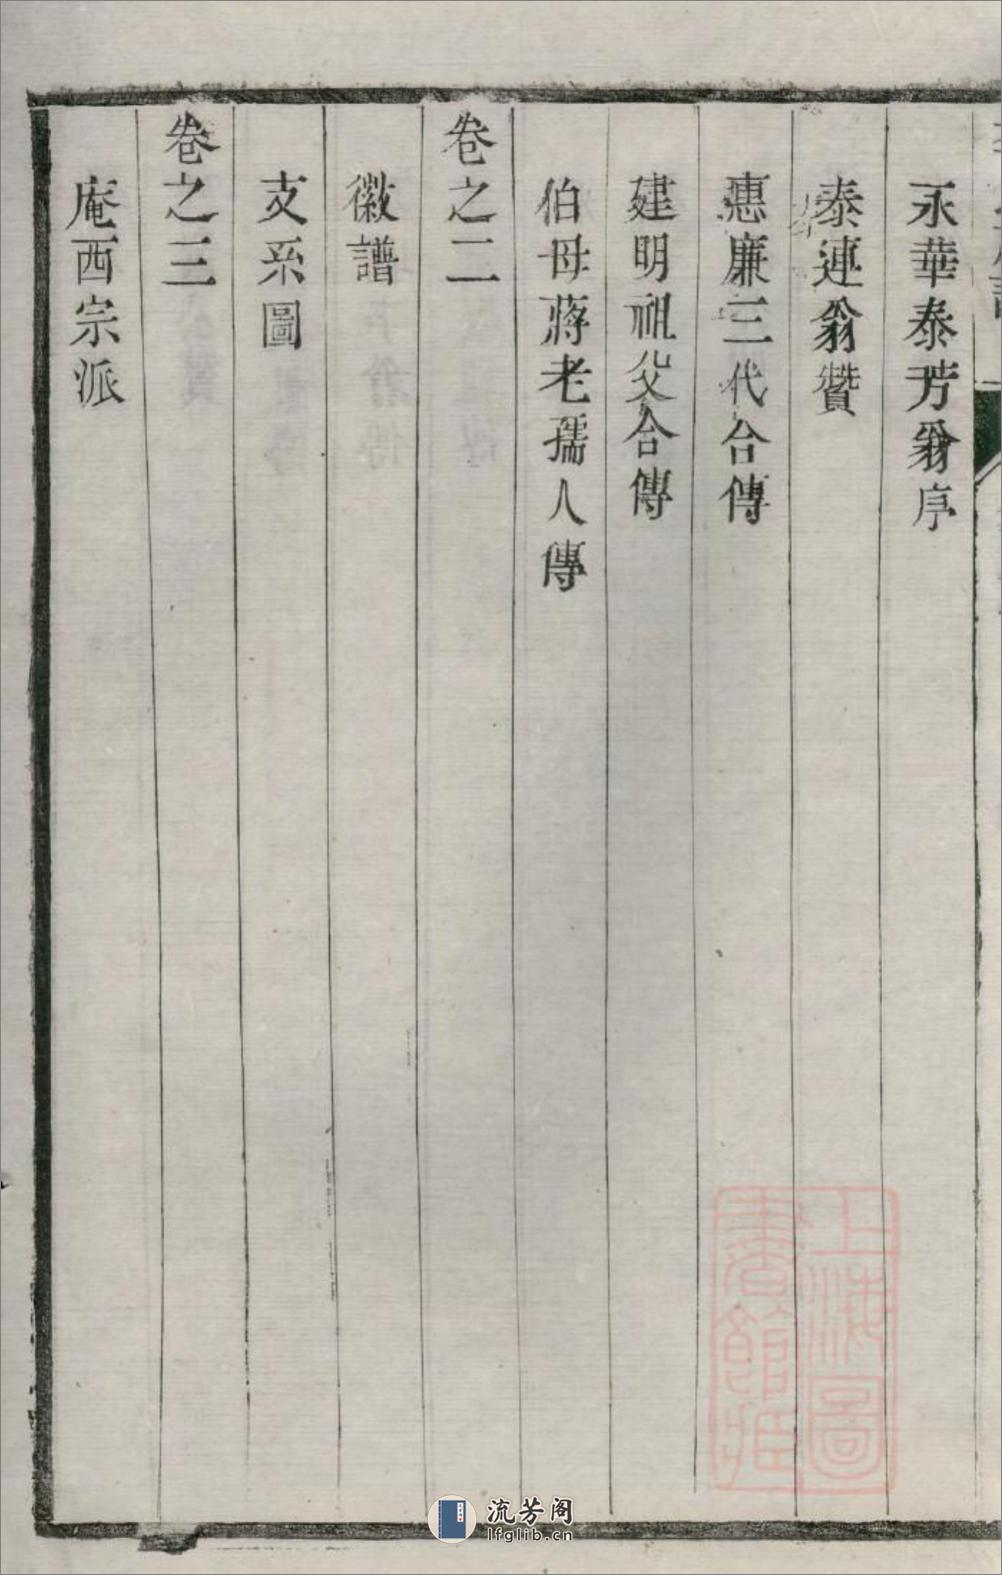 永華泰芳翁序
泰連翁贊
惪廉三代合傳
建明祖父合傳
伯母蔣老孺人傳
卷之二
徽譜
支系圖
卷之三
庵西宗派
上海圖
書館藏
流芳阁
lfglib.cn